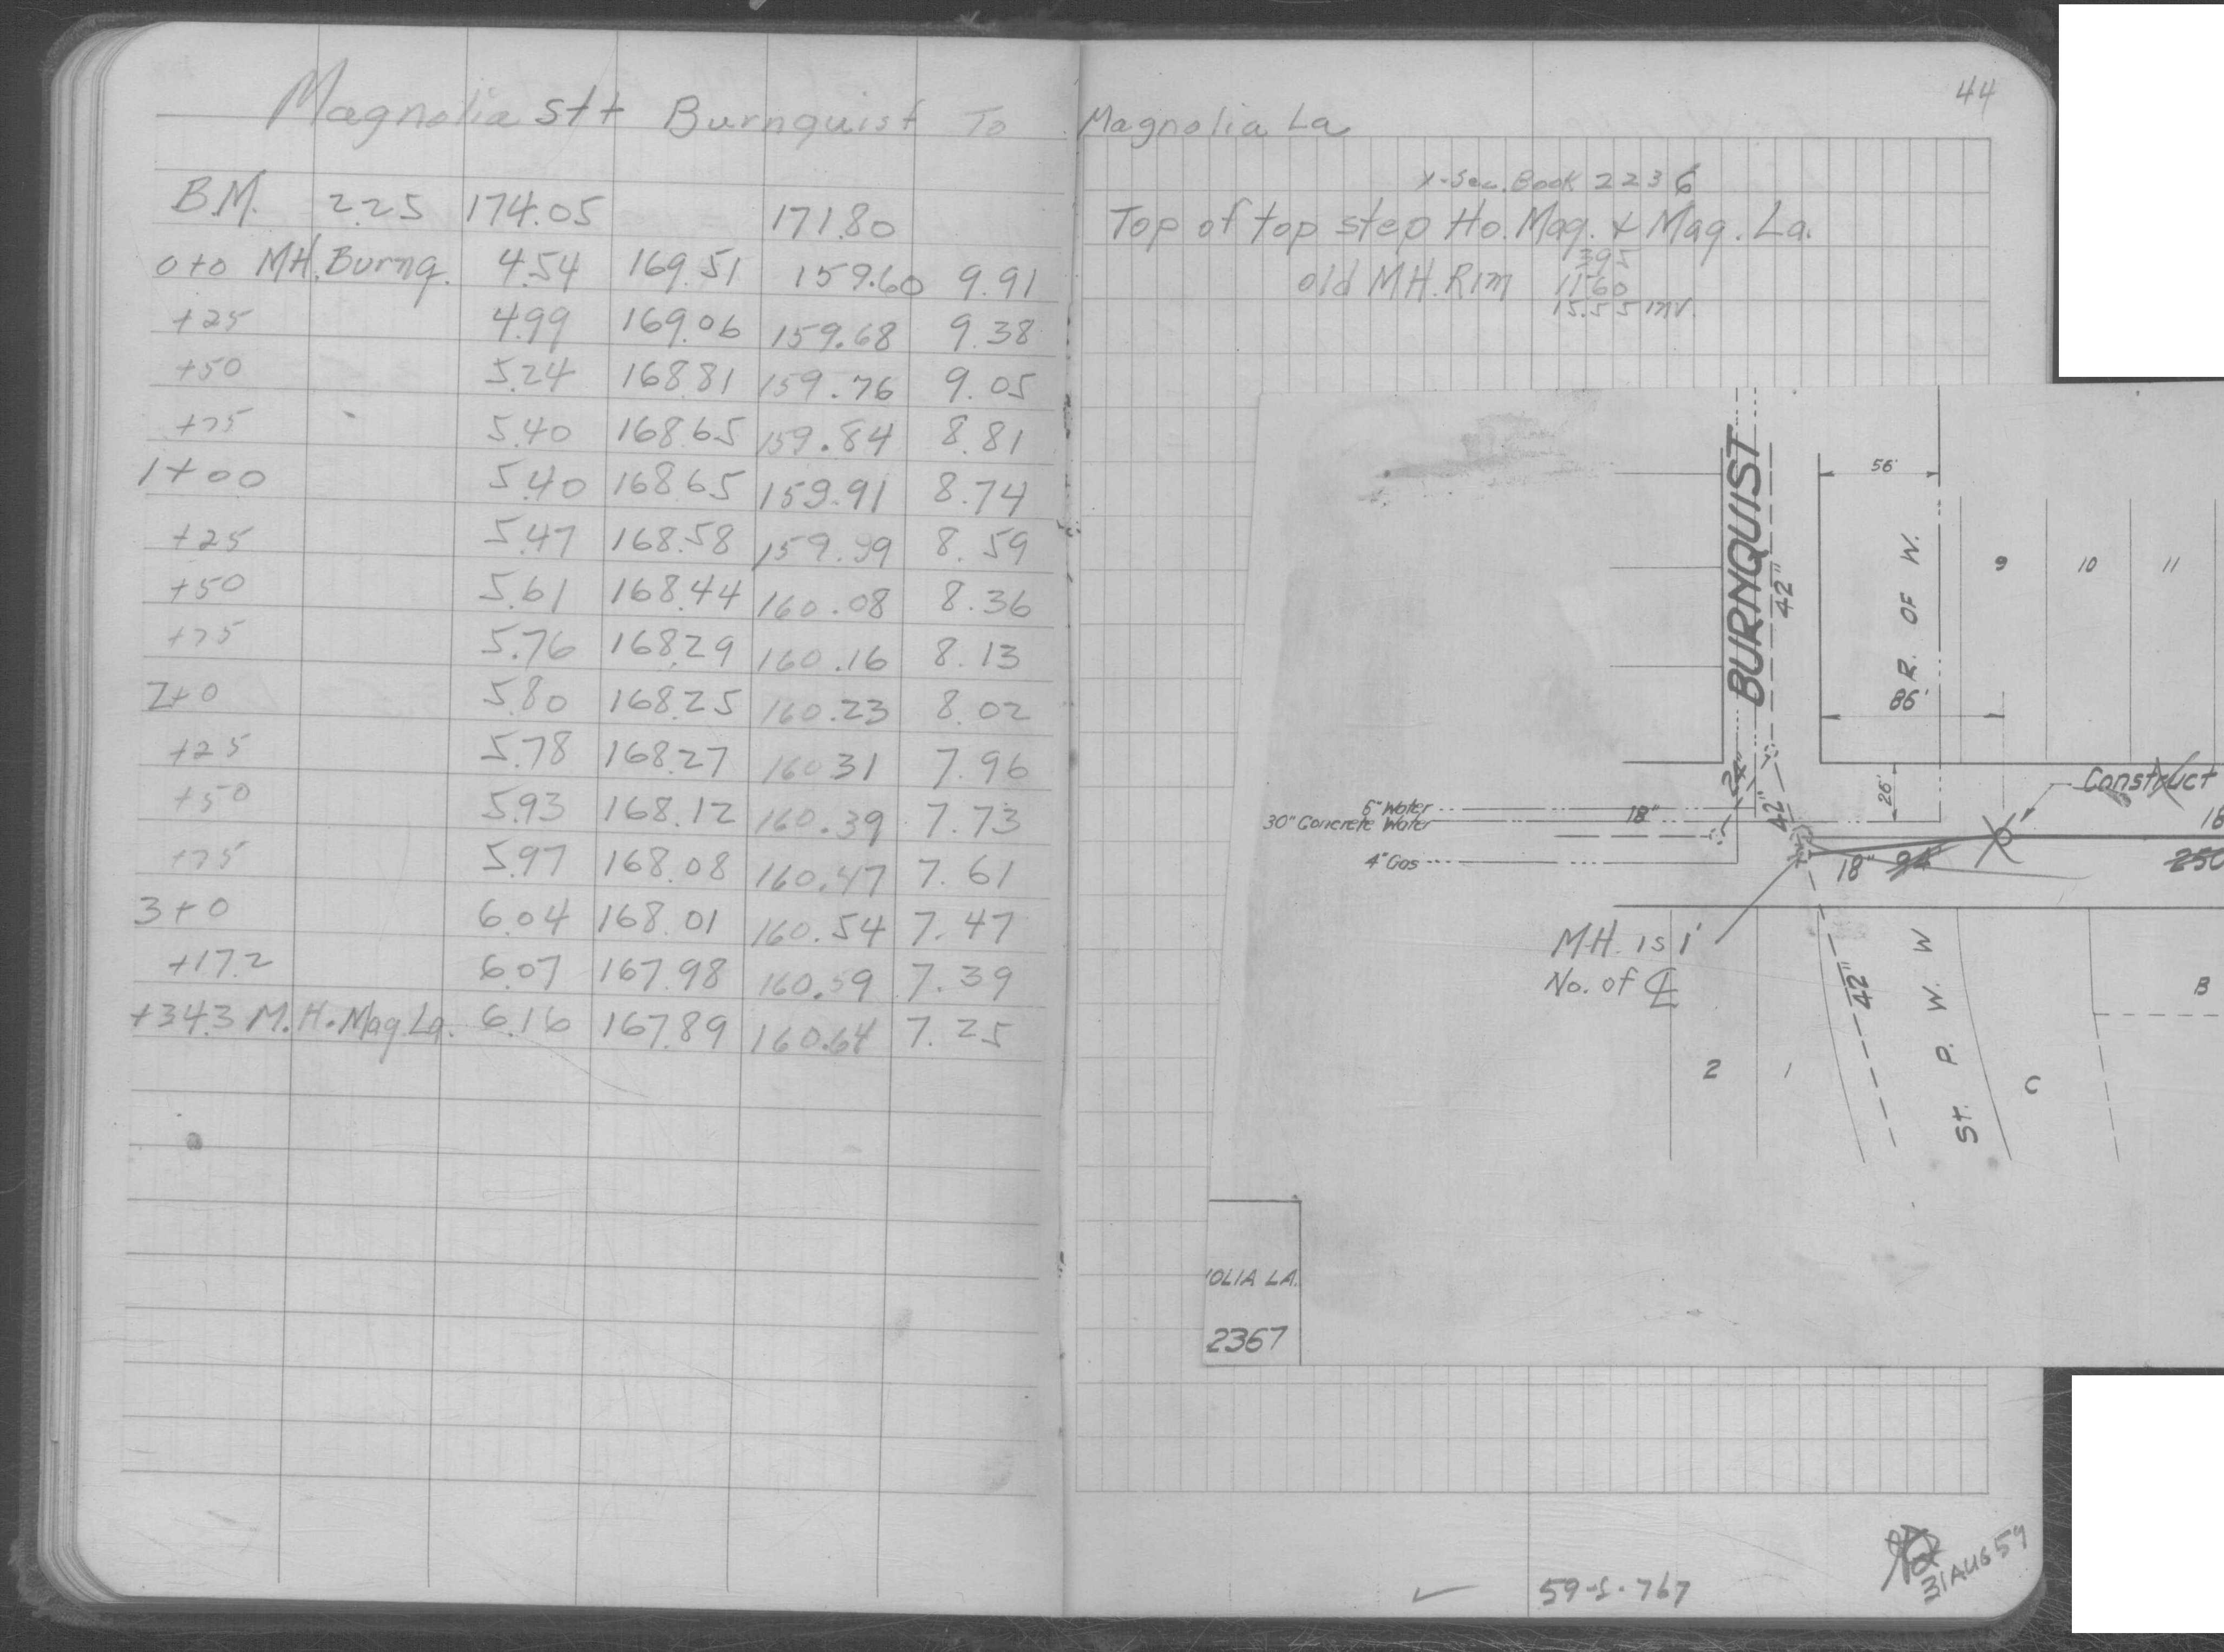 Magnolia St + Burnquist To Magnolia La
44
B.M. 2.25 174.05 171.80
0+0 MH. Burnq. 4.54 169.51 159.60 9.91
+25 4.99 169.06 159.68 9.38
+50 5.24 168.81 159.76 9.05
+75 5.40 168.65 159.84 8.81
1+00 5.40 168.65 159.91 8.74
+25 5.47 168.58 159.99 8.59
+50 5.61 168.44 160.08 8.36
+75 5.76 168.29 160.16 8.13
2+0 5.80 168.25 160.23 8.02
+25 5.78 168.27 160.31 7.96
+50 5.93 168.12 160.39 7.73
+75 5.97 168.08 160.47 7.61
3+0 6.04 168.01 160.54 7.47
+17.2 6.07 167.98 160.59 7.39
+34.3 M.H. Mag. La. 6.16 167.89 160.64 7.25
X-Sec. Book 2236
Top of top step Ho. Mag. & Mag. La.
395
old MH. Rim 11.60
15.55 inv.
BURNQUIST
42"
56'
R. OF W.
86'
9 10 11
24"
42"
26'
Construct
6" Water
18"
30" Concrete Water
4" Gas
18" 24"
18
250
MH. is 1'
No. of ℄
42"
St. P. W. W
2 1 C B
OLIA LA.
2367
59-S-767
31 AUG 59